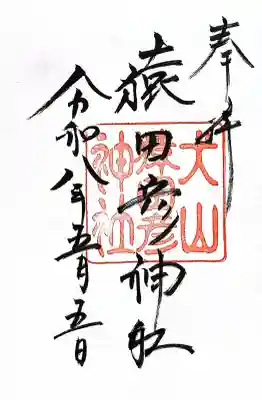 奉拝
猿田彦神社
大山
神社
令和八年五月五日